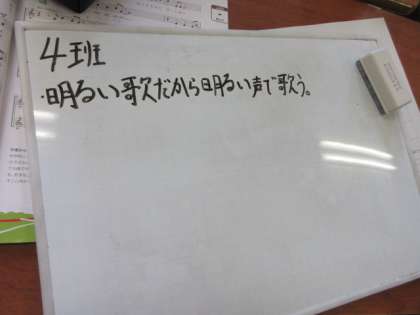 4班
・明るい歌だから明るい声で歌う。